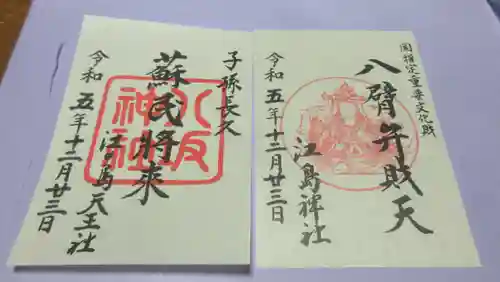 国指定重要文化財
八臂弁財天
江島神社
令和五年十二月廿三日
子孫長久
蘇民将来
八坂神社
江島天王社
令和五年十二月廿三日